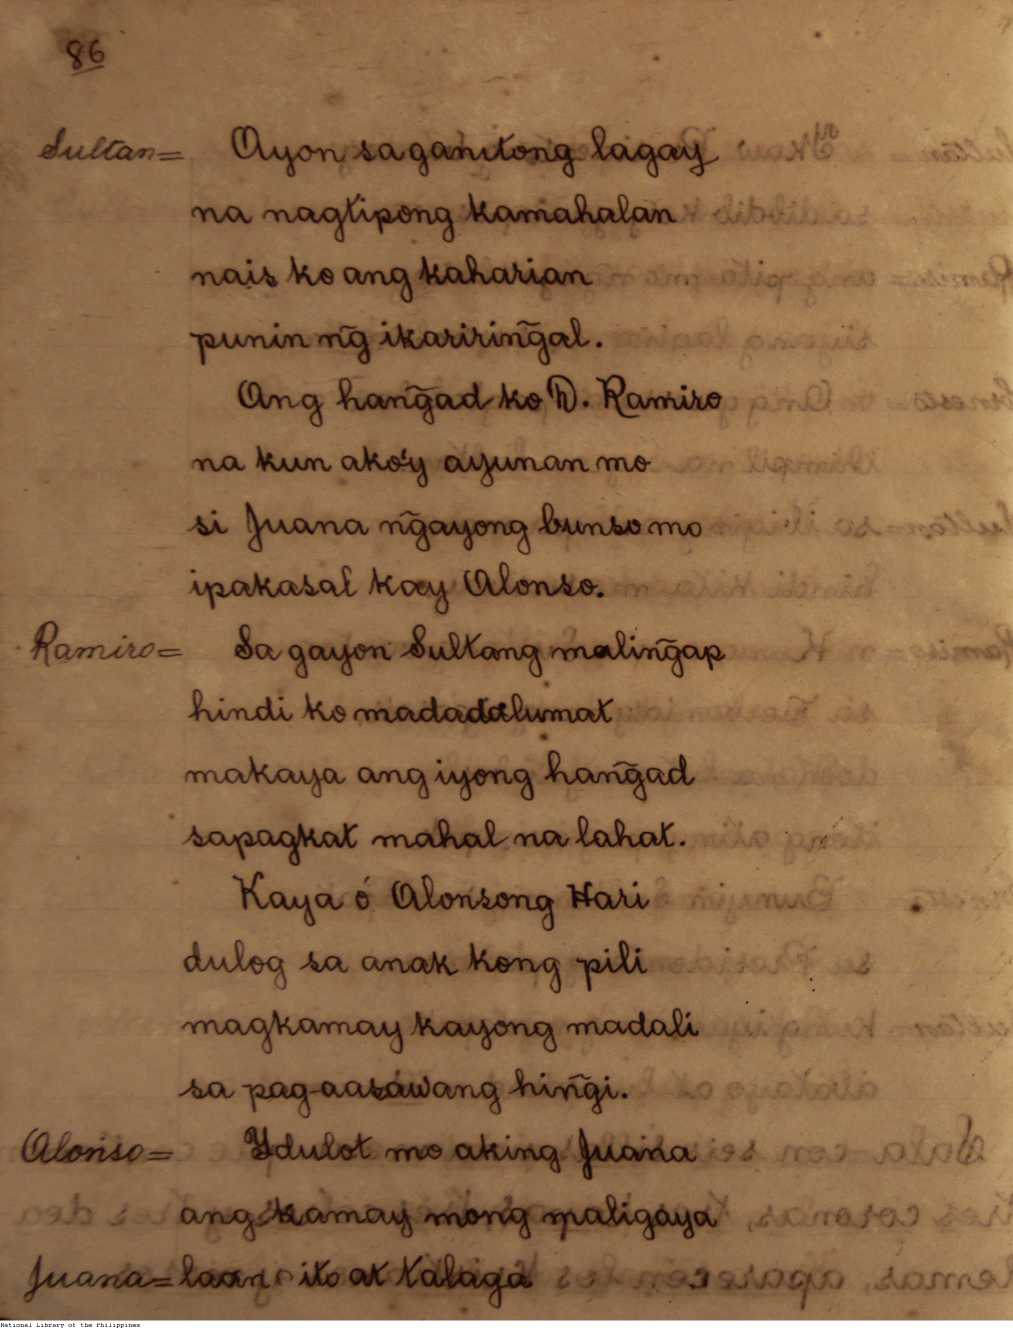 86
Sultan= Ayon sa ganitong lagay
na nagtipong kamahalan
nais ko ang kaharian
punin ng̃ ikariring̃al.
Ang hang̃ad ko D. Ramiro
na kun ako'y ayunan mo
si Juana ng̃ayong bunso mo
ipakasal kay Alonso.
Ramiro= Sa gayon Sultang maling̃ap
hindi ko madadalumat
makaya ang iyong hang̃ad
sapagkat mahal na lahat.
Kaya ó Alonsong Hari
dulog sa anak kong pili
magkamay kayong madali
sa pag-aasáwang hing̃i.
Alonso= Ydulot mo aking Juana
ang kamay mong maligaya
Juana= laan ito at talaga
National Library of the Philippines